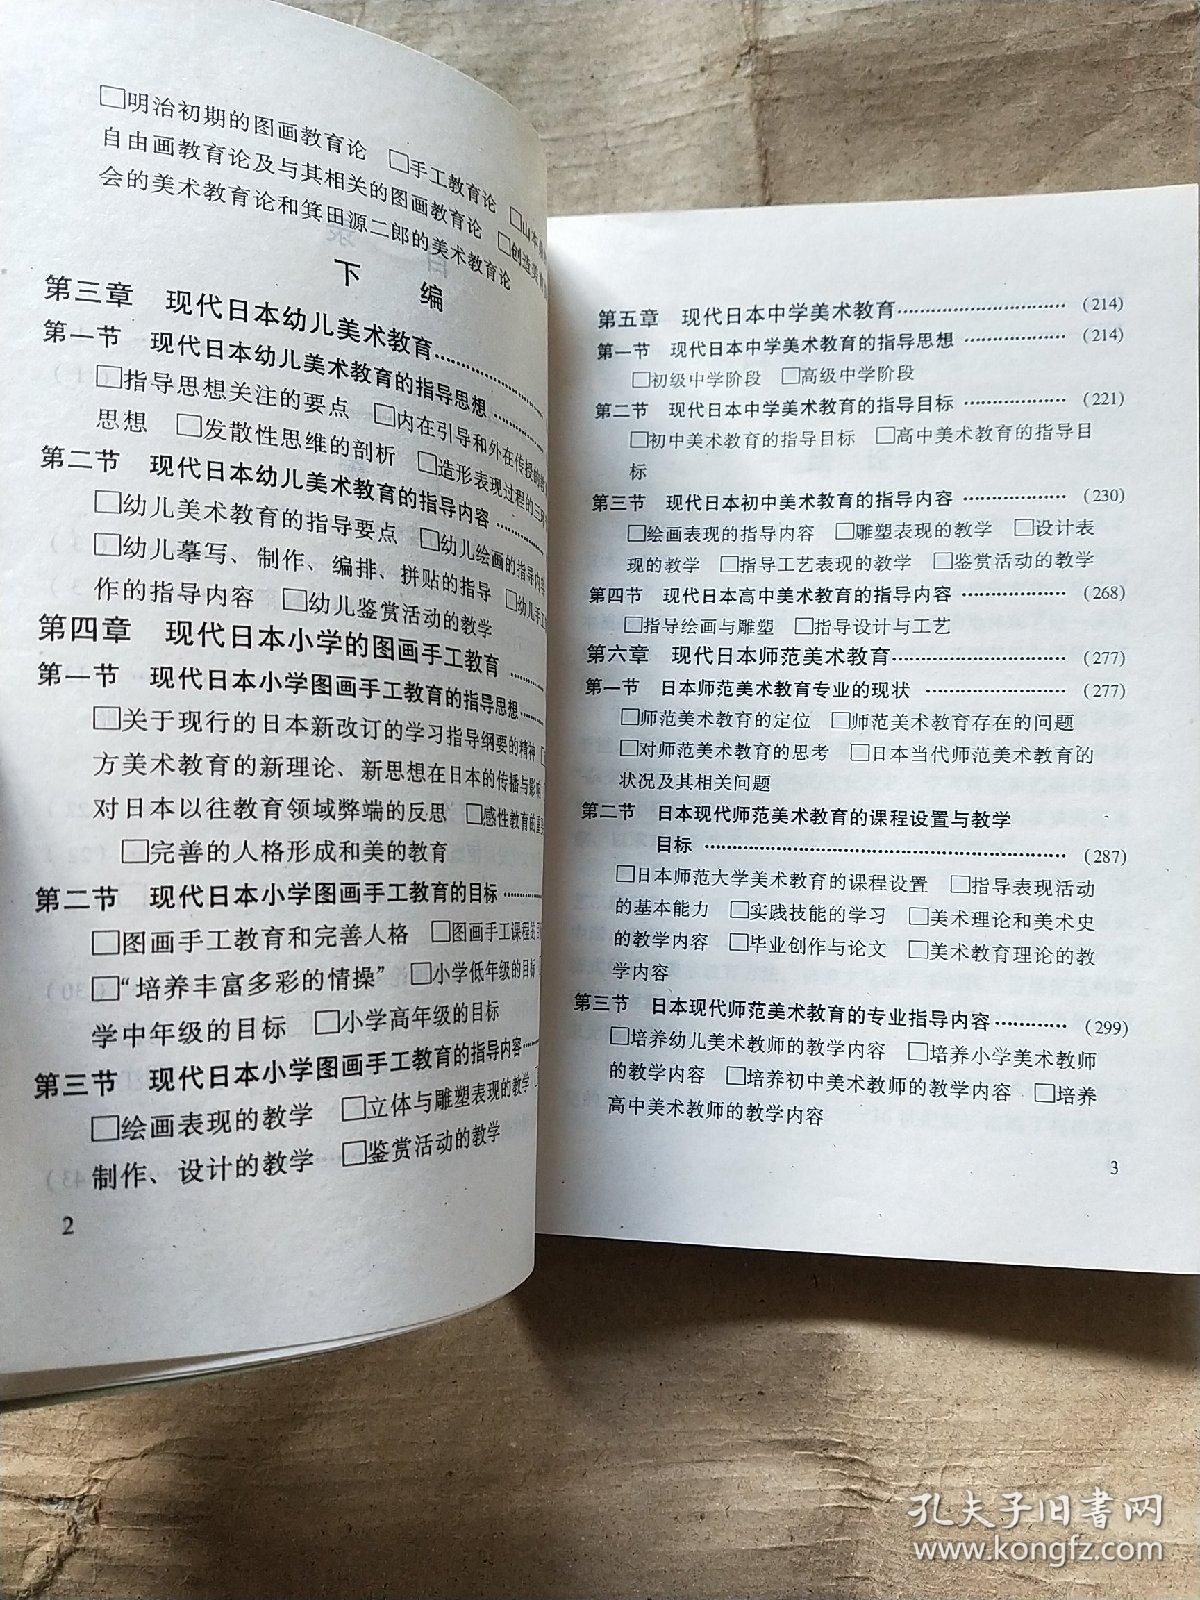 □明治初期的图画教育论 □手工教育论 □山本
自由画教育论及与其相关的图画教育论 □创造美
会的美术教育论和箕田源二郎的美术教育论
下 编
第三章 现代日本幼儿美术教育…………
第一节 现代日本幼儿美术教育的指导思想…………
□指导思想关注的要点 □内在引导和外在传授的
思想 □发散性思维的剖析 □造形表现过程的三
第二节 现代日本幼儿美术教育的指导内容…………
□幼儿美术教育的指导要点 □幼儿绘画的指导内容
□幼儿摹写、制作、编排、拼贴的指导 □幼儿手工
作的指导内容 □幼儿鉴赏活动的教学
第四章 现代日本小学的图画手工教育…………
第一节 现代日本小学图画手工教育的指导思想…………
□关于现行的日本新改订的学习指导纲要的精神
方美术教育的新理论、新思想在日本的传播与影响
对日本以往教育领域弊端的反思 □感性教育的重
□完善的人格形成和美的教育
第二节 现代日本小学图画手工教育的目标…………
□图画手工教育和完善人格 □图画手工课程
□“培养丰富多彩的情操” □小学低年级的目标
学中年级的目标 □小学高年级的目标
第三节 现代日本小学图画手工教育的指导内容…………
□绘画表现的教学 □立体与雕塑表现的教学
制作、设计的教学 □鉴赏活动的教学
2
第五章 现代日本中学美术教育………………… (214)
第一节 现代日本中学美术教育的指导思想 …………… (214)
□初级中学阶段 □高级中学阶段
第二节 现代日本中学美术教育的指导目标 …………… (221)
□初中美术教育的指导目标 □高中美术教育的指导目
标
第三节 现代日本初中美术教育的指导内容 …………… (230)
□绘画表现的指导内容 □雕塑表现的教学 □设计表
现的教学 □指导工艺表现的教学 □鉴赏活动的教学
第四节 现代日本高中美术教育的指导内容 …………… (268)
□指导绘画与雕塑 □指导设计与工艺
第六章 现代日本师范美术教育………………… (277)
第一节 日本师范美术教育专业的现状 ……………… (277)
□师范美术教育的定位 □师范美术教育存在的问题
□对师范美术教育的思考 □日本当代师范美术教育的
状况及其相关问题
第二节 日本现代师范美术教育的课程设置与教学
目标 ……………………………………… (287)
□日本师范大学美术教育的课程设置 □指导表现活动
的基本能力 □实践技能的学习 □美术理论和美术史
的教学内容 □毕业创作与论文 □美术教育理论的教
学内容
第三节 日本现代师范美术教育的专业指导内容………… (299)
□培养幼儿美术教师的教学内容 □培养小学美术教师
的教学内容 □培养初中美术教师的教学内容 □培养
高中美术教师的教学内容
3
孔夫子旧书网
www.kongfz.com